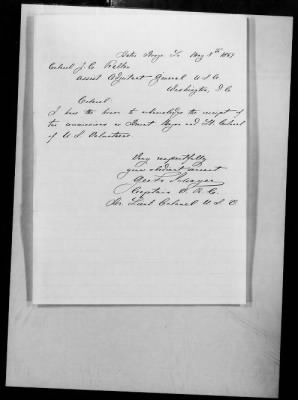 Baton Rouge La May 8th 1867
Colonel J. C. Kelton
Assist Adjutant General U S A
Washington, D.C.
Colonel
I have the honor to acknowledge the receipt of
the commissions as Brevet Major and Lt Colonel
of U.S. Volunteers.
Very respectfully
your obedient servant
Captain
Lieut Colonel U S